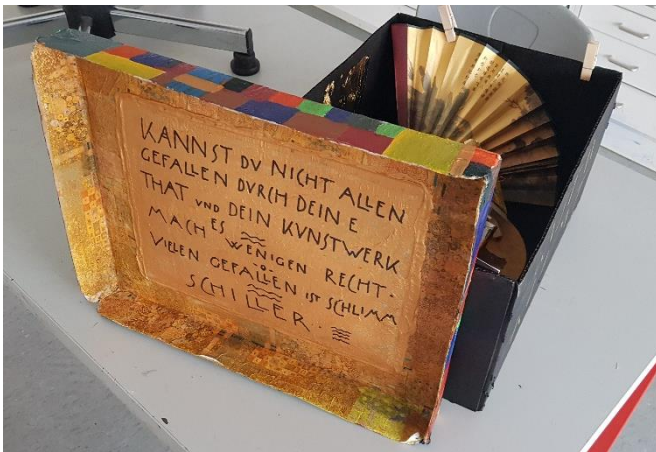 KANNST DV NICHT ALLEN
GEFALLEN DVRCH DEINE
THAT VND DEIN KVNSTWERK
MACH ES WENIGEN RECHT.
VIELEN GEFALLEN IST SCHLIMM
SCHILLER.